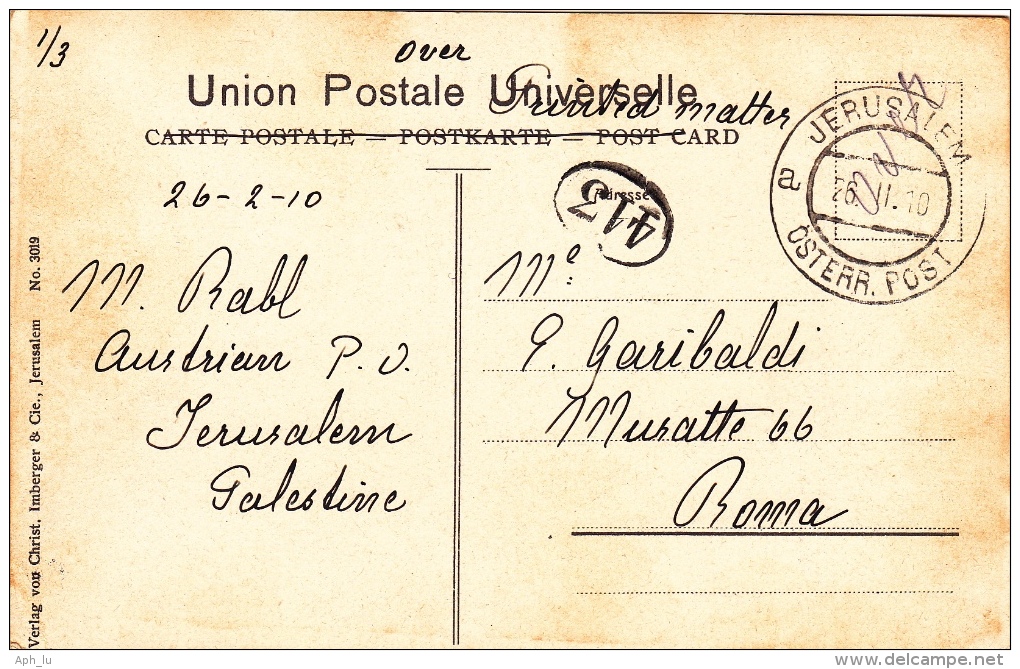 1/3
over
Union Postale Universelle
Printed matter
CARTE POSTALE — POSTKARTE — POST CARD
26-2-10
Adresse
417
JERUSALEM
a
26. II. 10
ÖSTERR. POST
M. Rabl
Austrian P. O.
Jerusalem
Palestine
Me
E. Garibaldi
Musatte 66
Roma
Verlag von Christ. Imberger & Cie., Jerusalem No. 3019
Aph_lu
delcampe.net